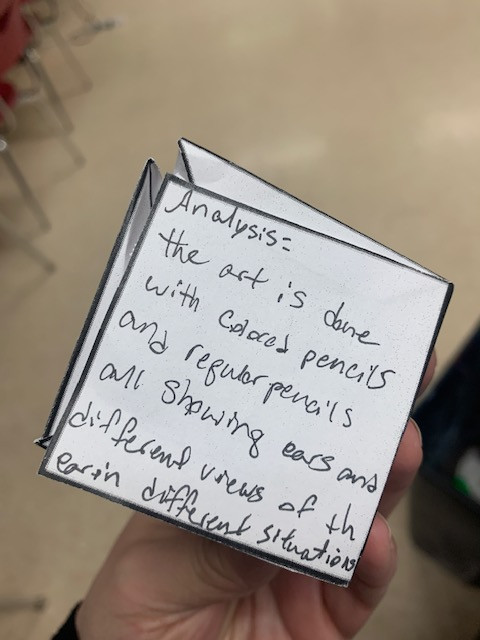 Analysis:
the art is done
with colored pencils
and regular pencils
all showing ears and
different views of th
ear in different situations